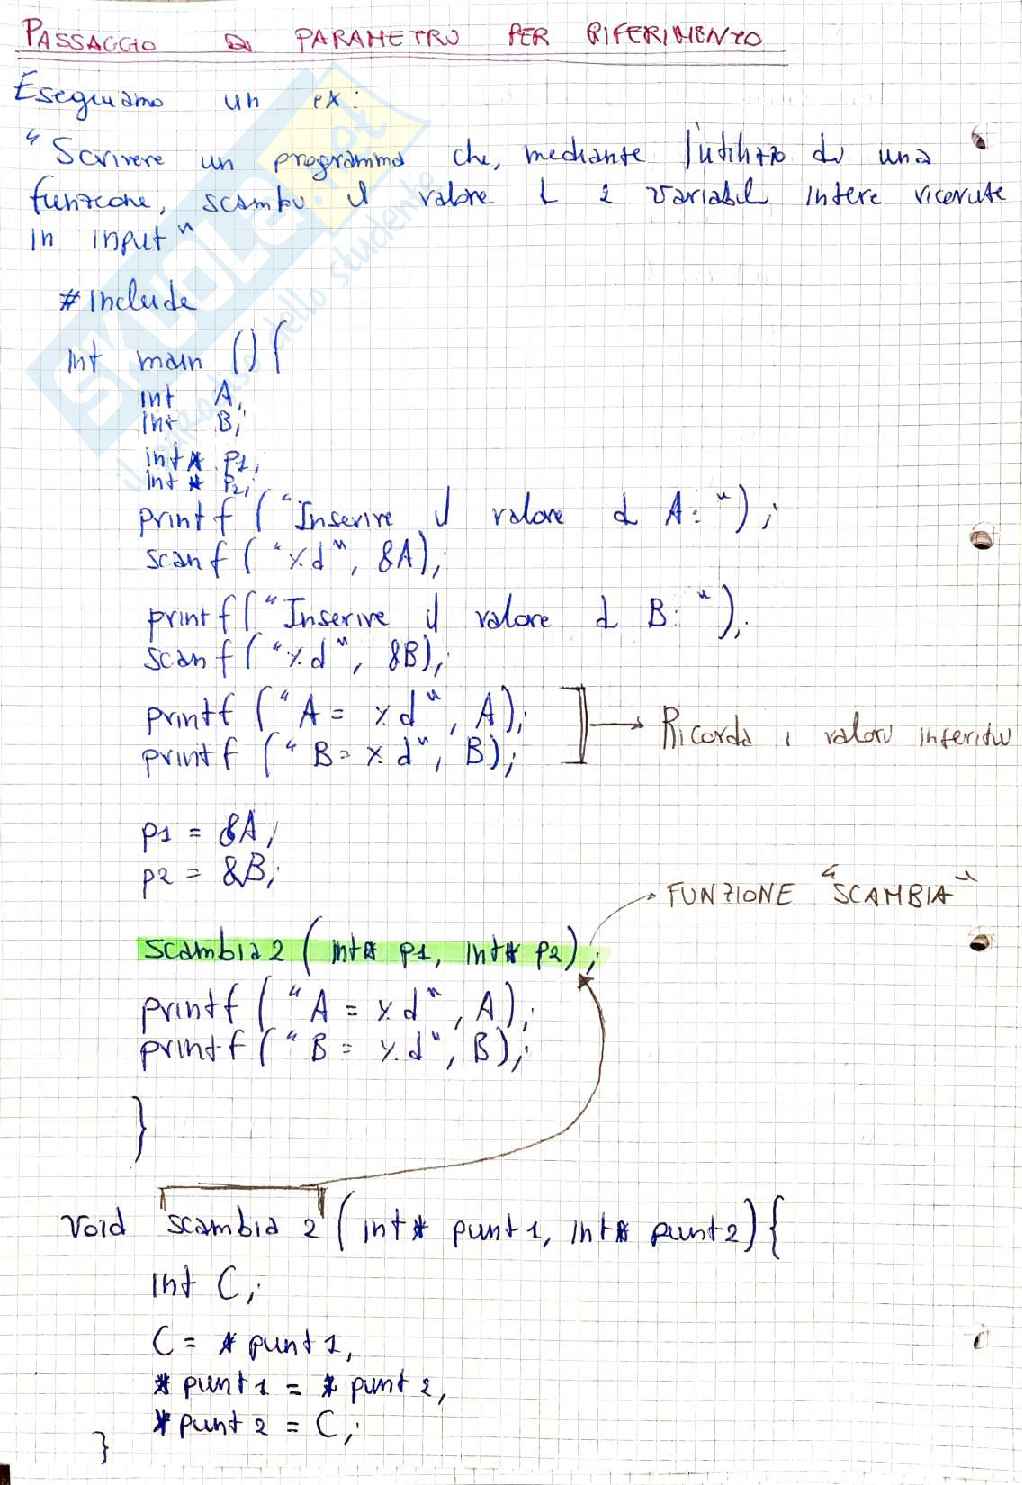 PASSAGGIO DI PARAMETRO PER RIFERIMENTO
Eseguiamo un ex:
"Scrivere un programma che, mediante l'utilizzo di una
funzione, scambi il valore di 2 variabili intere ricevute
in input"
#include
int main (){
int A;
int B;
int* p1;
int* p2;
printf ("Inserire il valore di A: ");
scanf ("%d", &A);
printf ("Inserire il valore di B: ");
scanf ("%d", &B);
printf ("A = %d", A);
printf ("B = %d", B);
→ Ricorda i valori inseriti
p1 = &A;
p2 = &B;
FUNZIONE "SCAMBIA"
scambia2 (int* p1, int* p2);
printf ("A = %d", A);
printf ("B = %d", B);
}
void scambia 2 (int* punt1, int* punt2){
int C;
C = *punt1;
*punt1 = *punt2;
*punt2 = C;
}